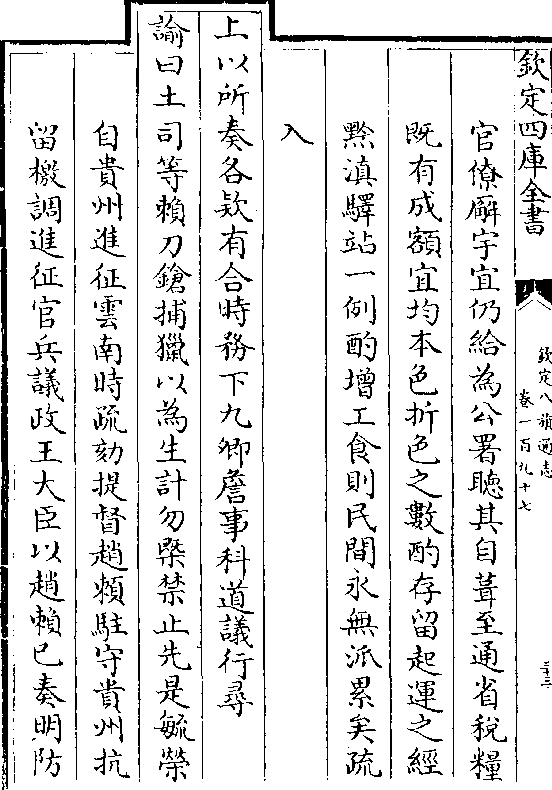 欽定四庫全書
欽定八旗通志
卷一百九十七
三十三
官僚廨宇宜仍給為公署聽其自葺至通省稅糧
既有成額宜均本色折色之數酌存留起運之經
黔滇驛站一例酌增工食則民間永無派累矣疏
入
上以所奏各欵有合時務下九卿詹事科道議行尋
諭曰土司等賴刀鎗捕獵以為生計勿槩禁止先是毓榮
自貴州進征雲南時疏劾提督趙賴駐守貴州抗
留檄調進征官兵議政王大臣以趙賴已奏明防